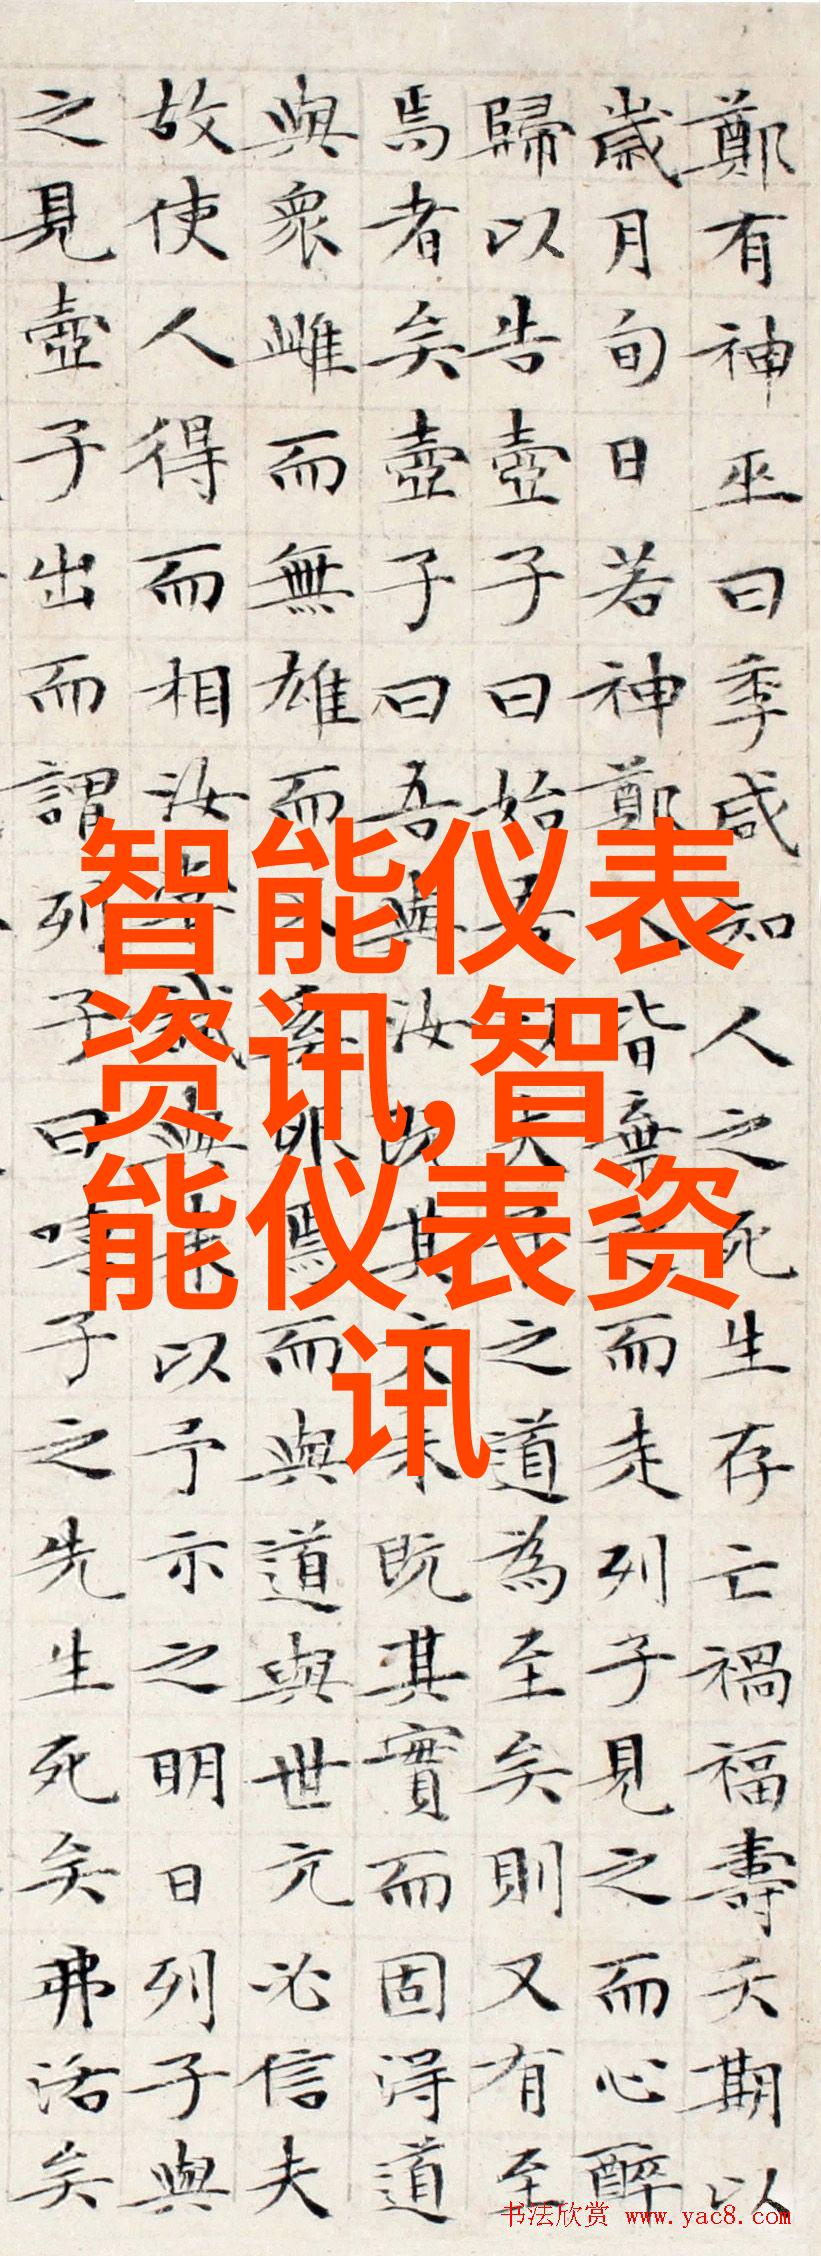 鄭有神巫曰季咸知人之死生存亡禍福壽夭期以
歲月旬日若神鄭人皆棄之而走列子見之而心醉
歸以告壺子曰始吾夫子之道為至矣則又有至
焉者矣壺子曰吾與汝既其文未既其實而固得道
與衆雌而無雄而奚卵焉而與道與世亢必信夫
故使人得而相汝嘗試與來以予示之明日列子與
之見壺子出而謂列子曰嘻子之先生死矣弗活矣
智能仪表
资讯,智
能仪表资
讯
书法欣赏 www.yac8.com